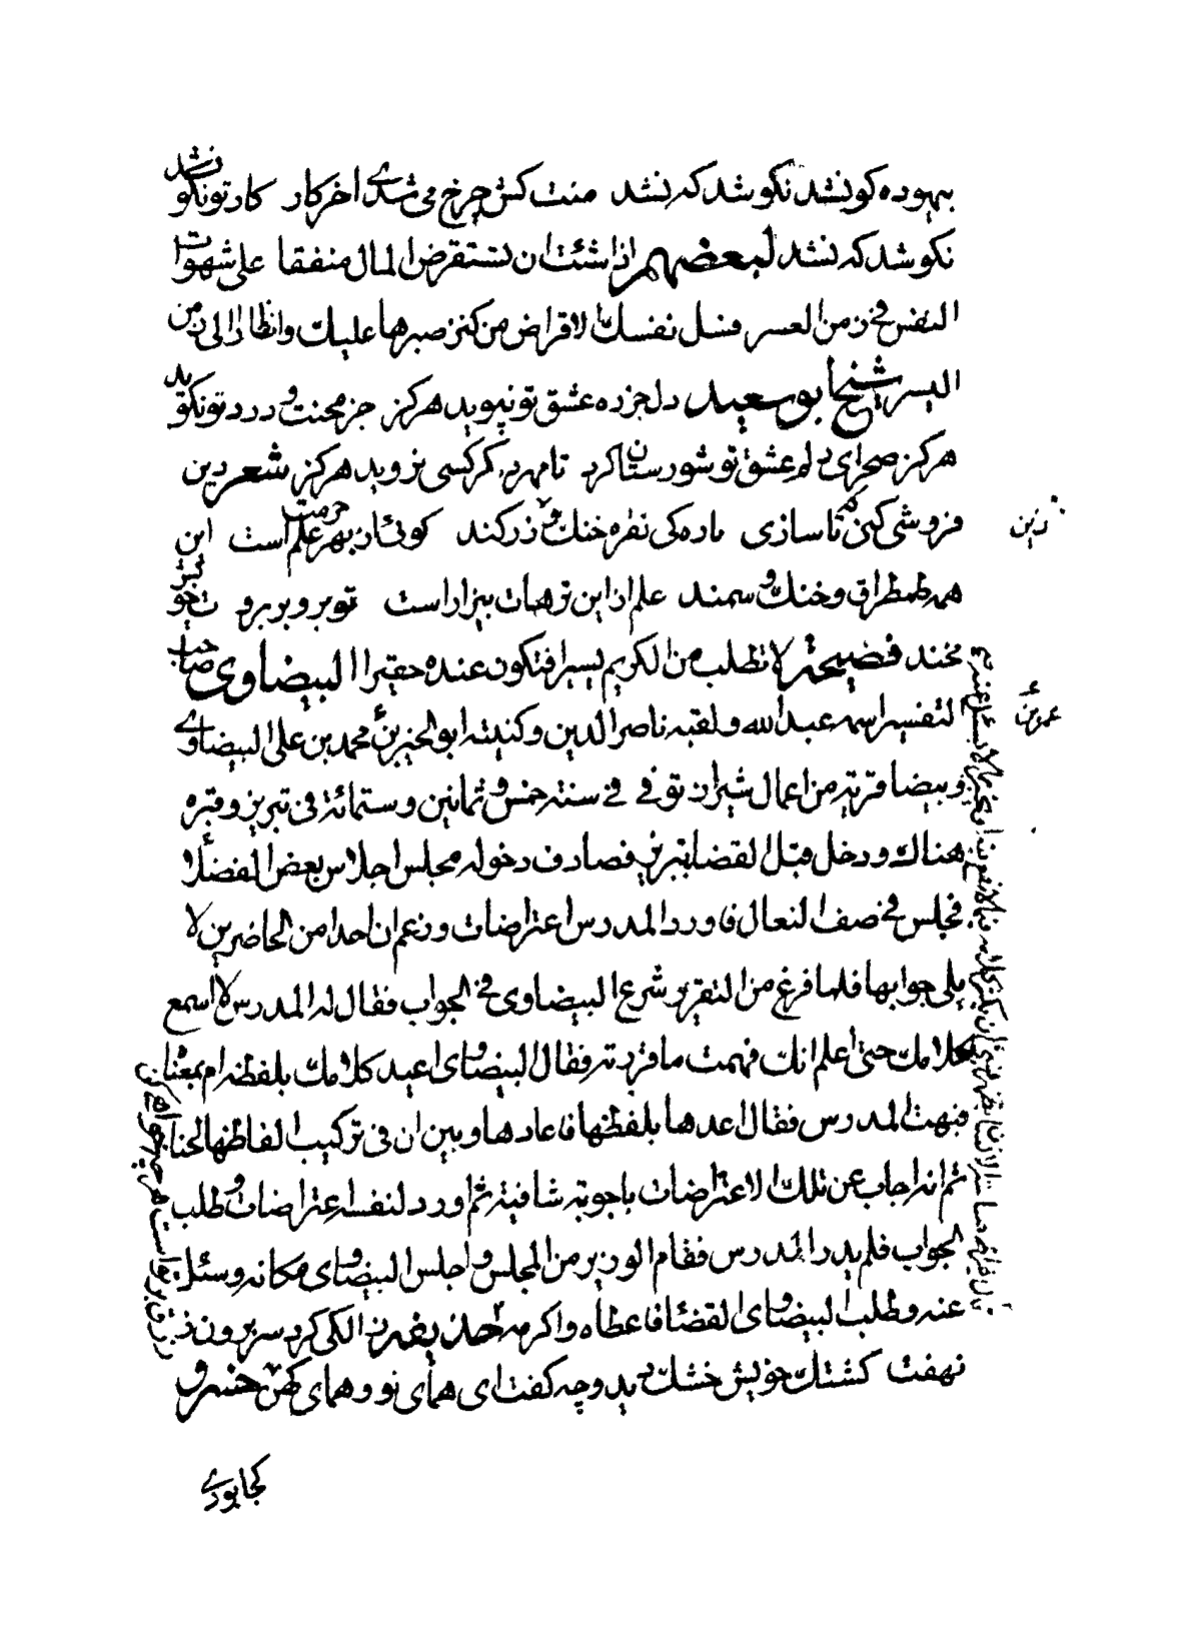 بیهوده کو نشد نکو شد که نشد منت کش چرخ می شدی اخر کار کار تو نکو نشد
نکو شد که نشد لبعضهم اذا شئت ان تستقرض المال منفقا على شهوات
النفس في زمن العسر فسل نفسك الاقراض من كنز صبرها عليك وانظارا الى زمن
اليسر شيخ ابو سعيد دل جز ره عشق تو نپوید هرگز جز محنت و درد تو نگوید
هرگز صحرای دلم عشق تو شورستان کرد تا مهر دگر کسی نروید هرگز شعر دین
فروشی کنی که تا سازی باره کی نقره خنك و زر کند کوئی از بهر حرمت علم است این
همه طمطراق و خنك و سمند علم از این ترهات بیزار است تو برو بر بروت خویش
بخند فضيحة لا تطلب من الكريم يسيرا فتكون عنده حقيرا البيضاوى صاحب
التفسير اسمه عبد الله ولقبه ناصر الدين وكنيته ابو الخير بن محمد بن على البيضاوي
وبيضا قرية من اعمال شيراز توفي في سنة خمس وثمانين وستمائة فى تبريز وقبره
هناك ودخل قبل القضا تبريز فصادف دخوله مجلس اجلاس بعض الفضلا
فجلس في صف النعال فاورد المدرس اعتراضات وزعم ان احدا من الحاضرين لا
يلى جوابها فلما فرغ من التقرير شرع البيضاوى في الجواب فقال له المدرس لا اسمع
كلامك حتى اعلم انك فهمت ما قررته فقال البيضاوى اعيد كلامك بلفظه ام بمعناه
فبهت المدرس فقال اعدها بلفظها فاعادها وبين ان فى تركيب الفاظها لحنا
ثم انه اجاب عن تلك الاعتراضات باجوبة شافية ثم اورد لنفسه اعتراضات وطلب
الجواب فلم يدر المدرس فقام الوزير من المجلس واجلس البيضاوى مكانه وسئل
عنه وطلب البيضاوى القضا فاعطاه واكرمه
نهفت کشتك خویش خشك دید و چه گفت ای همای نو و همای کهن خسرو
کجا بودی
دین
عمر بن